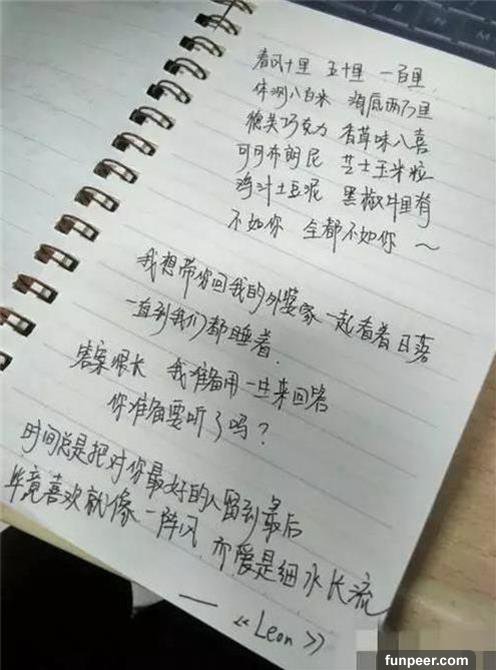 春风十里 五十里 一百里
体测八百米 海底两万里
德芙巧克力 香草味八喜
可可布朗尼 芝士玉米粒
鸡汁土豆泥 黑椒牛里脊
不如你 全都不如你 ~
我想带你回我的外婆家 一起看着日落
一直到我们都睡着.
答案很长 我准备用一生来回答
你准备要听了吗?
时间总是把对你最好的人留到最后
毕竟喜欢就像一阵风 而爱是细水长流
— «Leon»
funpeer.com